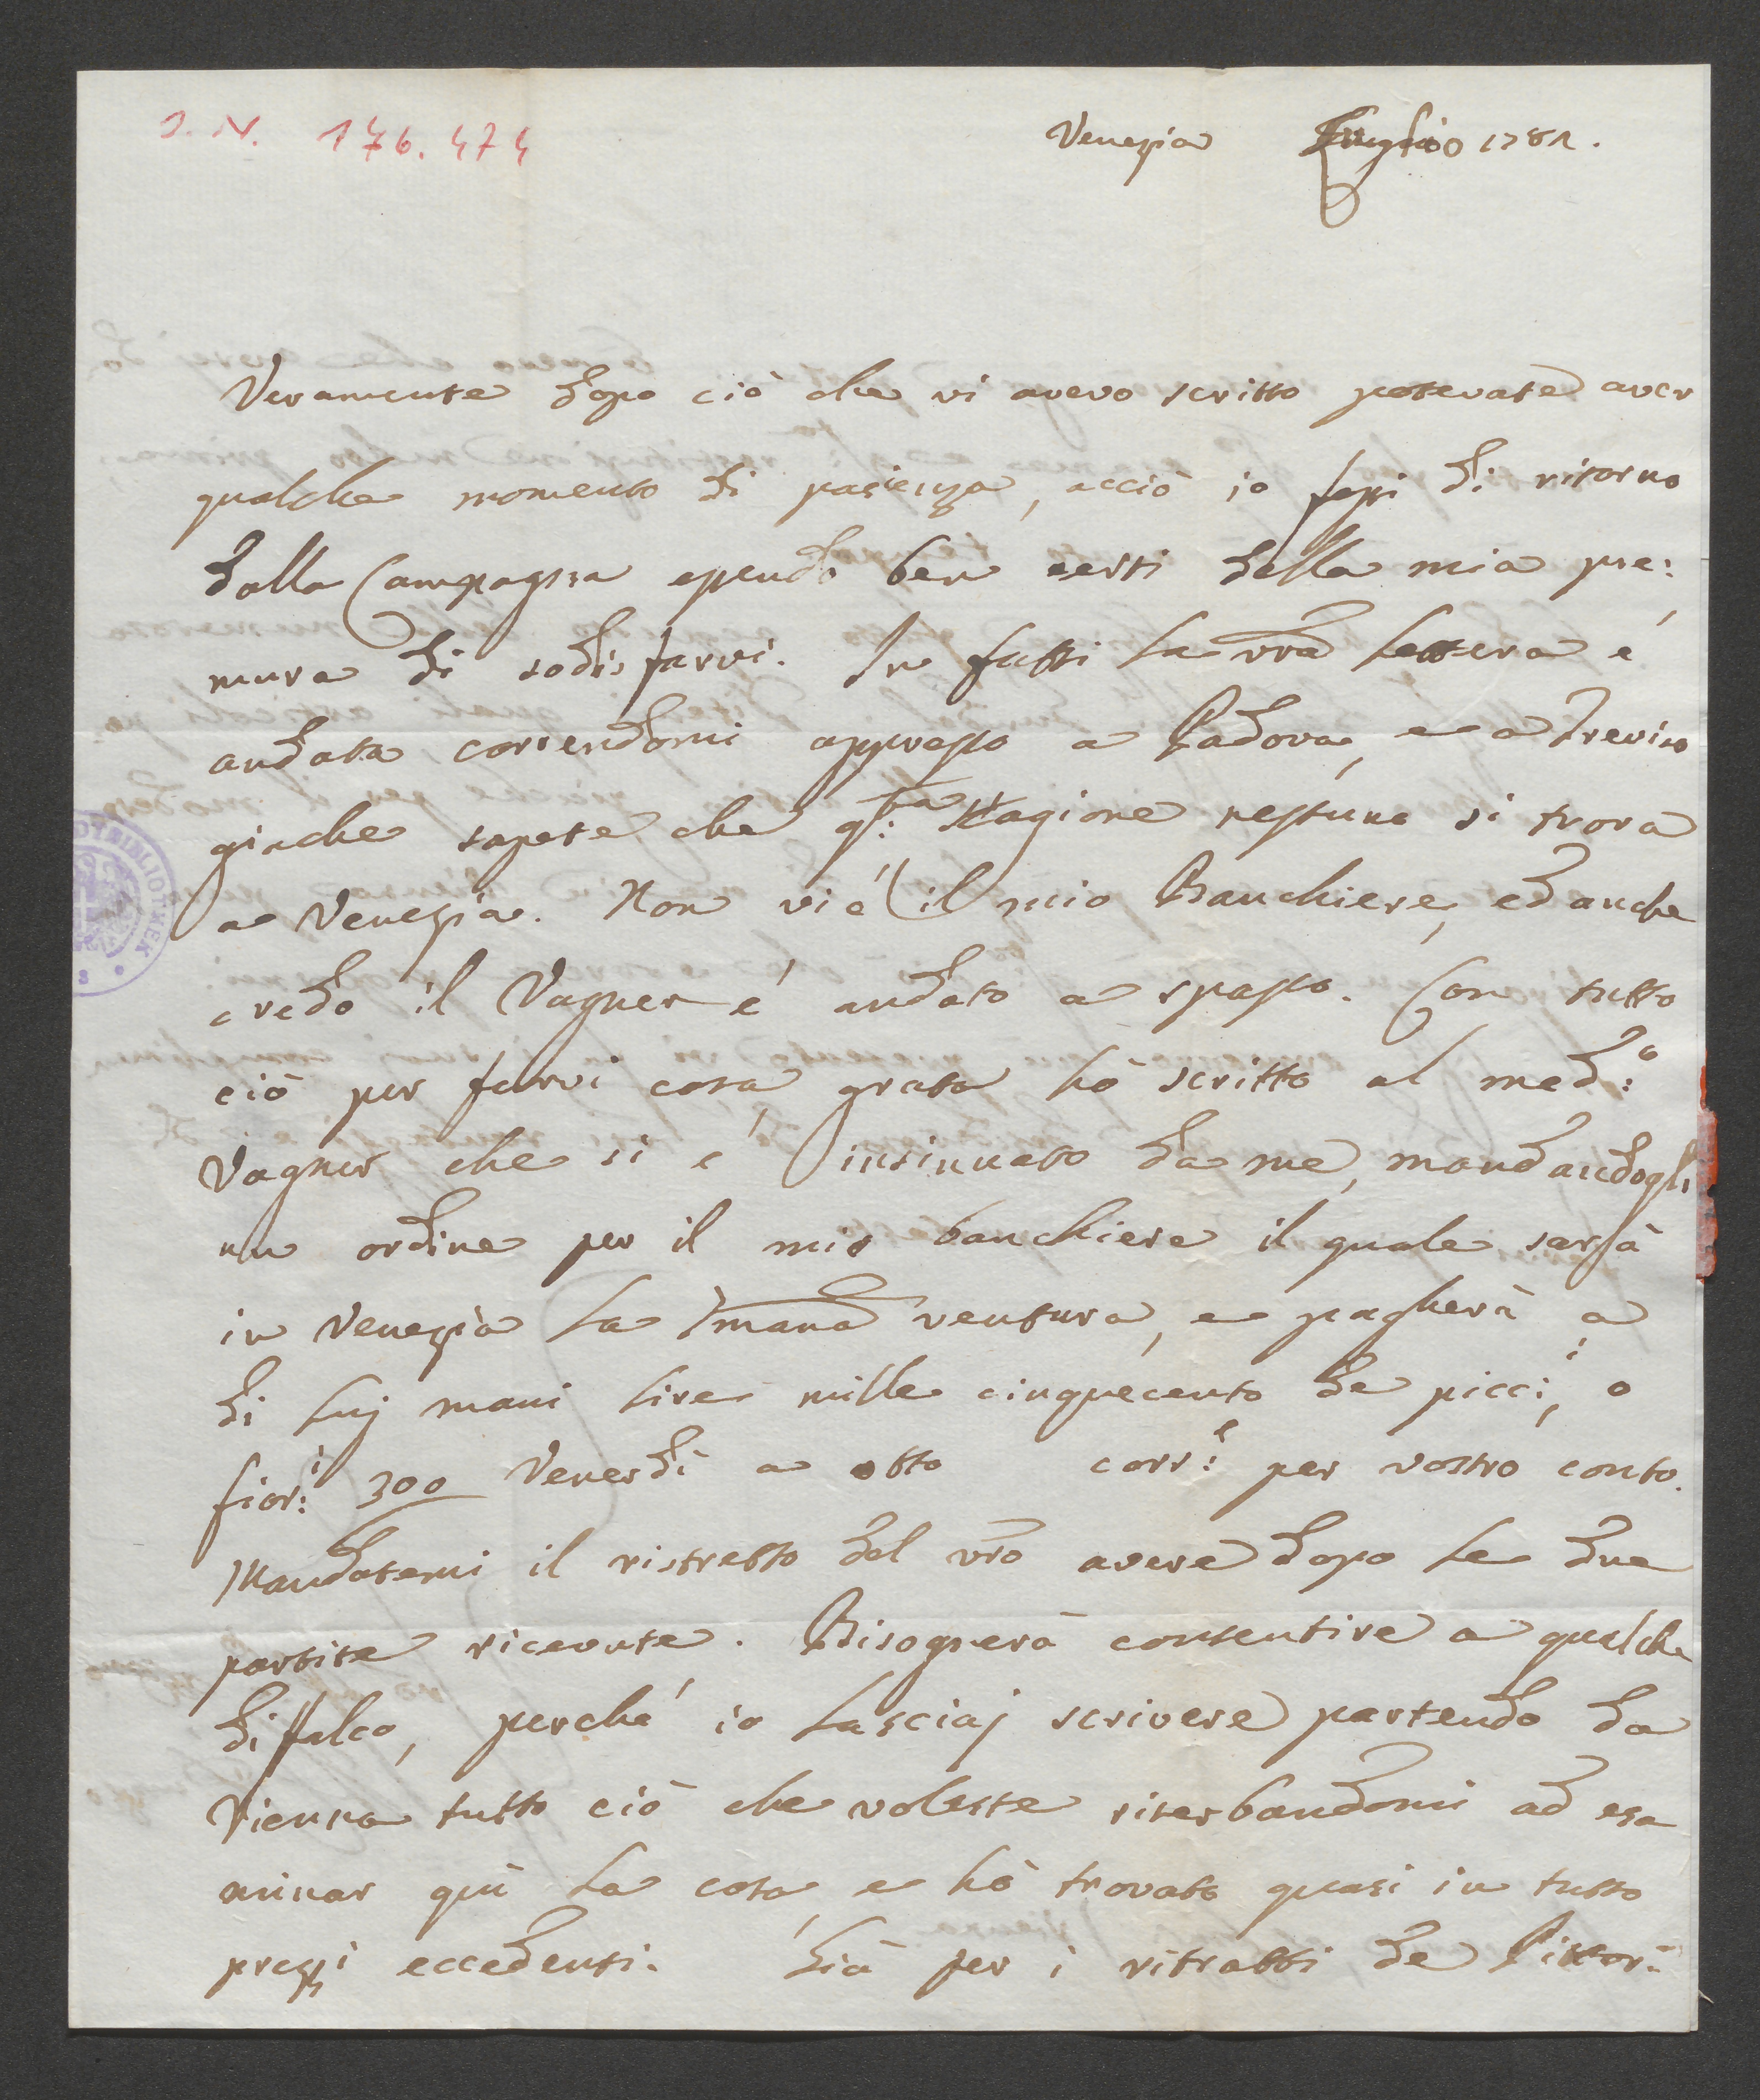 I.N. 176.474
Venezia Luglio 1781.
Veramente dopo ciò che vi avevo scritto potevate aver
qualche momento di pacienza, acciò io fossi di ritorno
dalla Campagna essendo ben certi della mia pre:
mura di sodisfarvi. In fatti la vrã lettera é
andata correndomi appresso a Padova, e a Treviso
giache sapete che qta: stagione nessuno si trova
a Venezia. Non vi é il mio Banchiere, ed anche
credo il Vagner é andato a spasso. Con tutto
ciò per farvi cosa grata hò scritto al med:o
Vagner che si é insinuato da me, mandandogli
un ordine per il mio banchiere il quale sarà
in Venezia la 7mana ventura, e pagherà a
di luj mani lire mille cinquecento de picci:i, o
fior:i 300 Venerdì a otto corr:e per vostro conto.
Mandatemi il ristretto del vro avere dopo le due
partite ricevute. Bisognerà consentire a qualche
difalco, perché io lasciaj scrivere partendo da
Vienna tutto ciò che voleste riserbandomi ad esa
minar quì la cosa, e hò trovato quasi in tutto
prezzi eccedenti. Già per i ritratti de Pittori